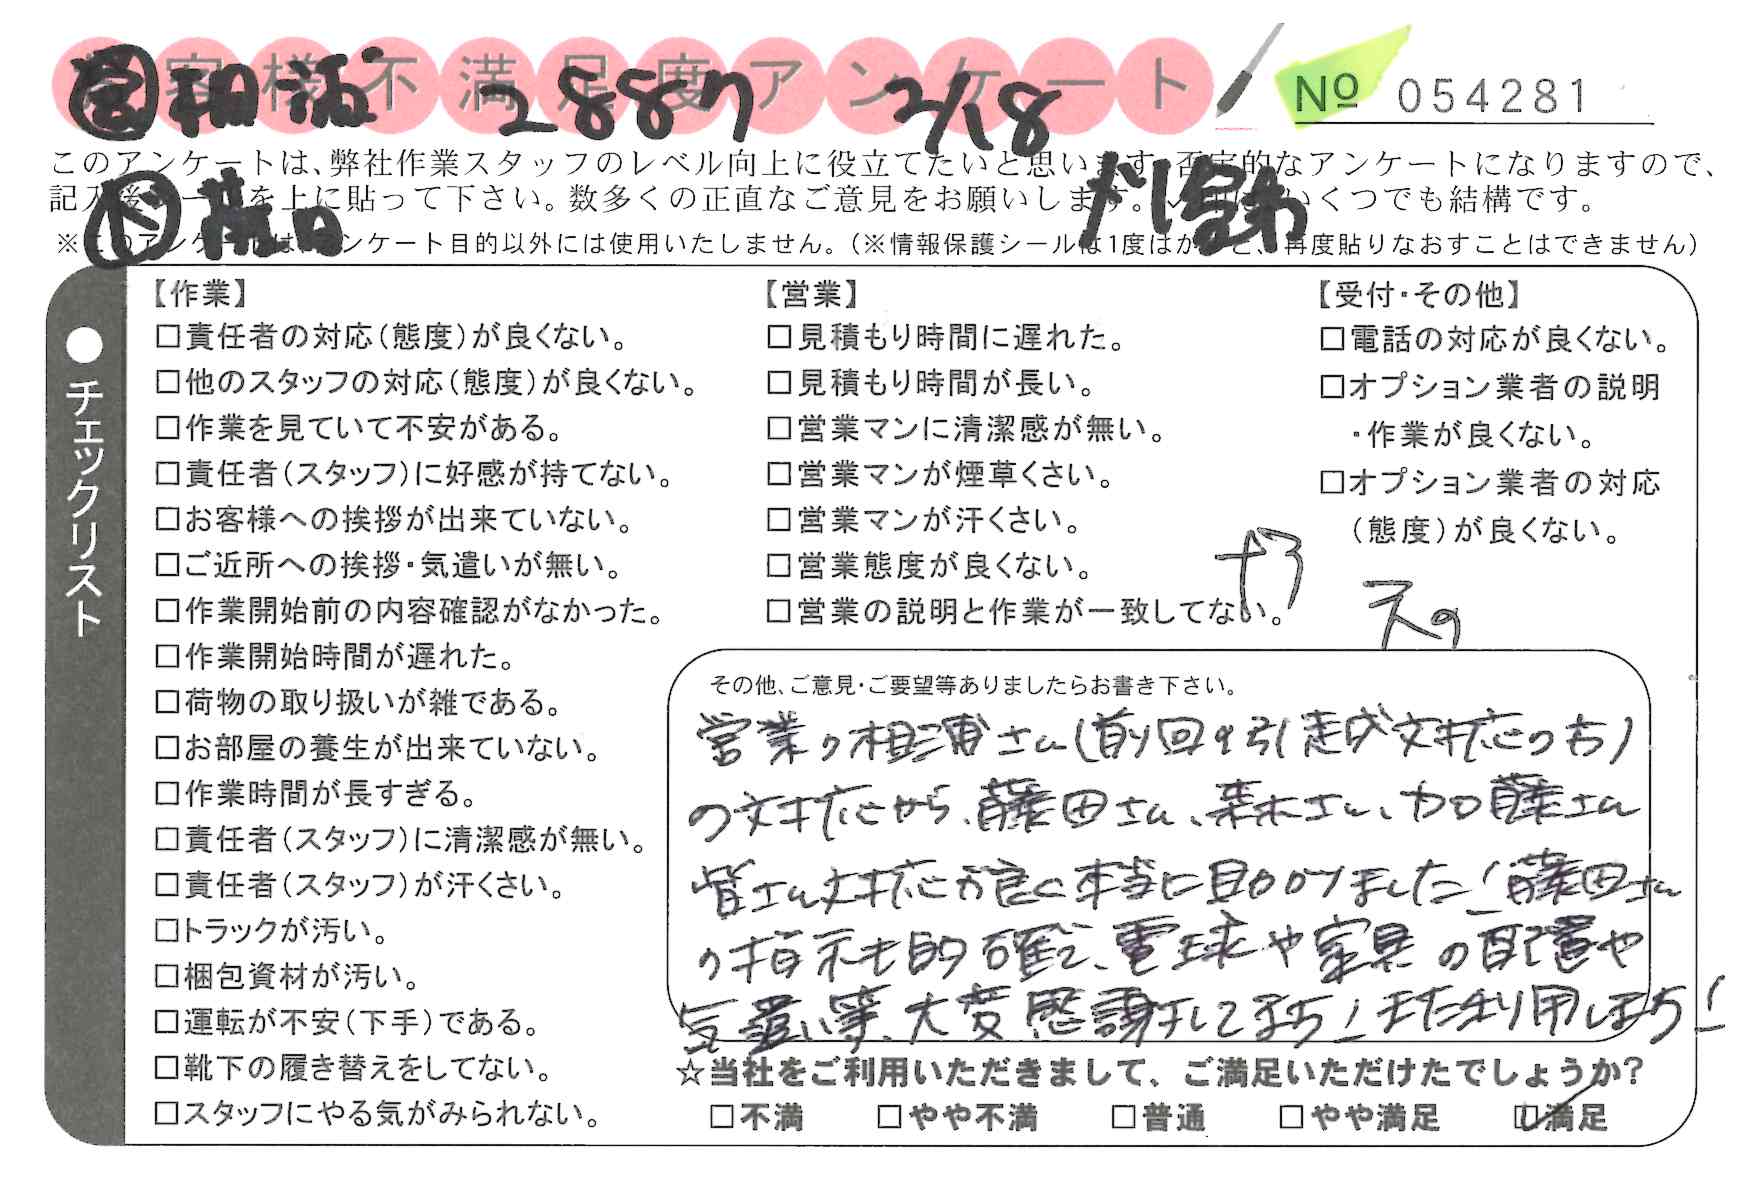 お客様不満足度アンケート
No 054281
2887 2/18
このアンケートは、弊社作業スタッフのレベル向上に役立てたいと思います。否定的なアンケートになりますので、
記入後シールを上に貼って下さい。数多くの正直なご意見をお願いします。いくつでも結構です。
※このアンケートは、アンケート目的以外には使用いたしません。(※情報保護シールは1度はがすと、再度貼りなおすことはできません)
●チェックリスト
【作業】
□責任者の対応(態度)が良くない。
□他のスタッフの対応(態度)が良くない。
□作業を見ていて不安がある。
□責任者(スタッフ)に好感が持てない。
□お客様への挨拶が出来ていない。
□ご近所への挨拶・気遣いが無い。
□作業開始前の内容確認がなかった。
□作業開始時間が遅れた。
□荷物の取り扱いが雑である。
□お部屋の養生が出来ていない。
□作業時間が長すぎる。
□責任者(スタッフ)に清潔感が無い。
□責任者(スタッフ)が汗くさい。
□トラックが汚い。
□梱包資材が汚い。
□運転が不安(下手)である。
□靴下の履き替えをしてない。
□スタッフにやる気がみられない。
【営業】
□見積もり時間に遅れた。
□見積もり時間が長い。
□営業マンに清潔感が無い。
□営業マンが煙草くさい。
□営業マンが汗くさい。
□営業態度が良くない。
□営業の説明と作業が一致してない。
【受付・その他】
□電話の対応が良くない。
□オプション業者の説明
・作業が良くない。
□オプション業者の対応
(態度)が良くない。
その他、ご意見・ご要望等ありましたらお書き下さい。
営業の相浦さん(前回の引越が対応の方)
の対応から、藤田さん、森木さん、加藤さん
皆さん対応が良く本当に助かりました!藤田さん
の指示も的確で、電球や家具の配置や
気遣い等、大変感謝してます!また利用します!
☆当社をご利用いただきまして、ご満足いただけたでしょうか?
□不満 □やや不満 □普通 □やや満足 ☑満足